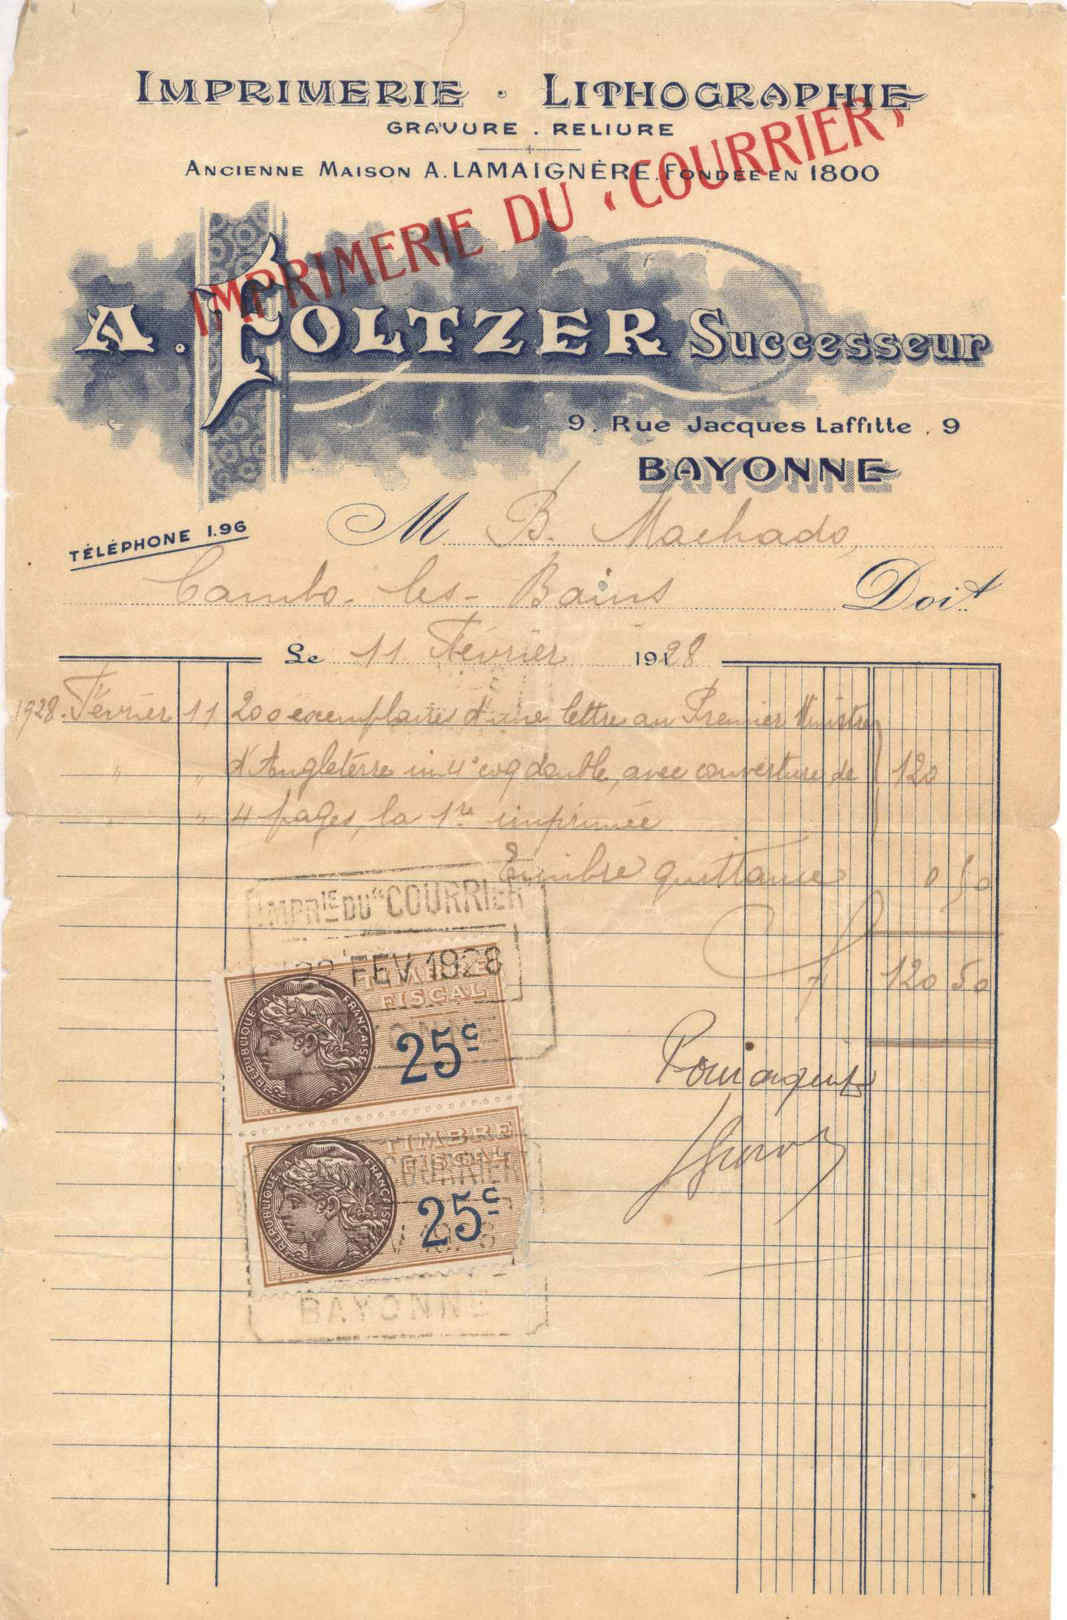 IMPRIMERIE · LITHOGRAPHIE
GRAVURE . RELIURE
ANCIENNE MAISON A. LAMAIGNÈRE. FONDÉE EN 1800
IMPRIMERIE DU « COURRIER »
A. FOLTZER Successeur
9, Rue Jacques Laffitte, 9
BAYONNE
TÉLÉPHONE 1.96
M B. Machado,
Cambo-les-Bains Doit
Le 11 Février 1928
1928. Février 11 200 exemplaires d'une lettre au Premier Ministre
" " d'Angleterre in 4° coq double, avec couverture de 120
" " 4 pages, la 1re imprimée
Timbre quittance 0 50
120 50
Pour acquit
IMPRIE DU "COURRIER
FEV 1928
TIMBRE
FISCAL
RÉPUBLIQUE FRANÇAISE
25c
TIMBRE
FISCAL
COURRIER
RÉPUBLIQUE FRANÇAISE
25c
BAYONNE